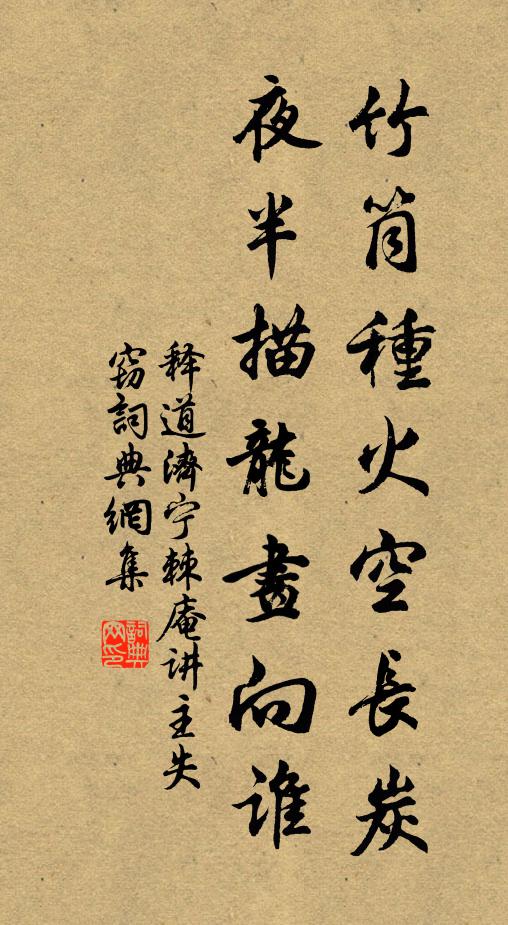 竹筒種火空長炭
夜半描龍畫向誰
释道濟宁棘庵讲主失
窃詞典網集
詞典
网印